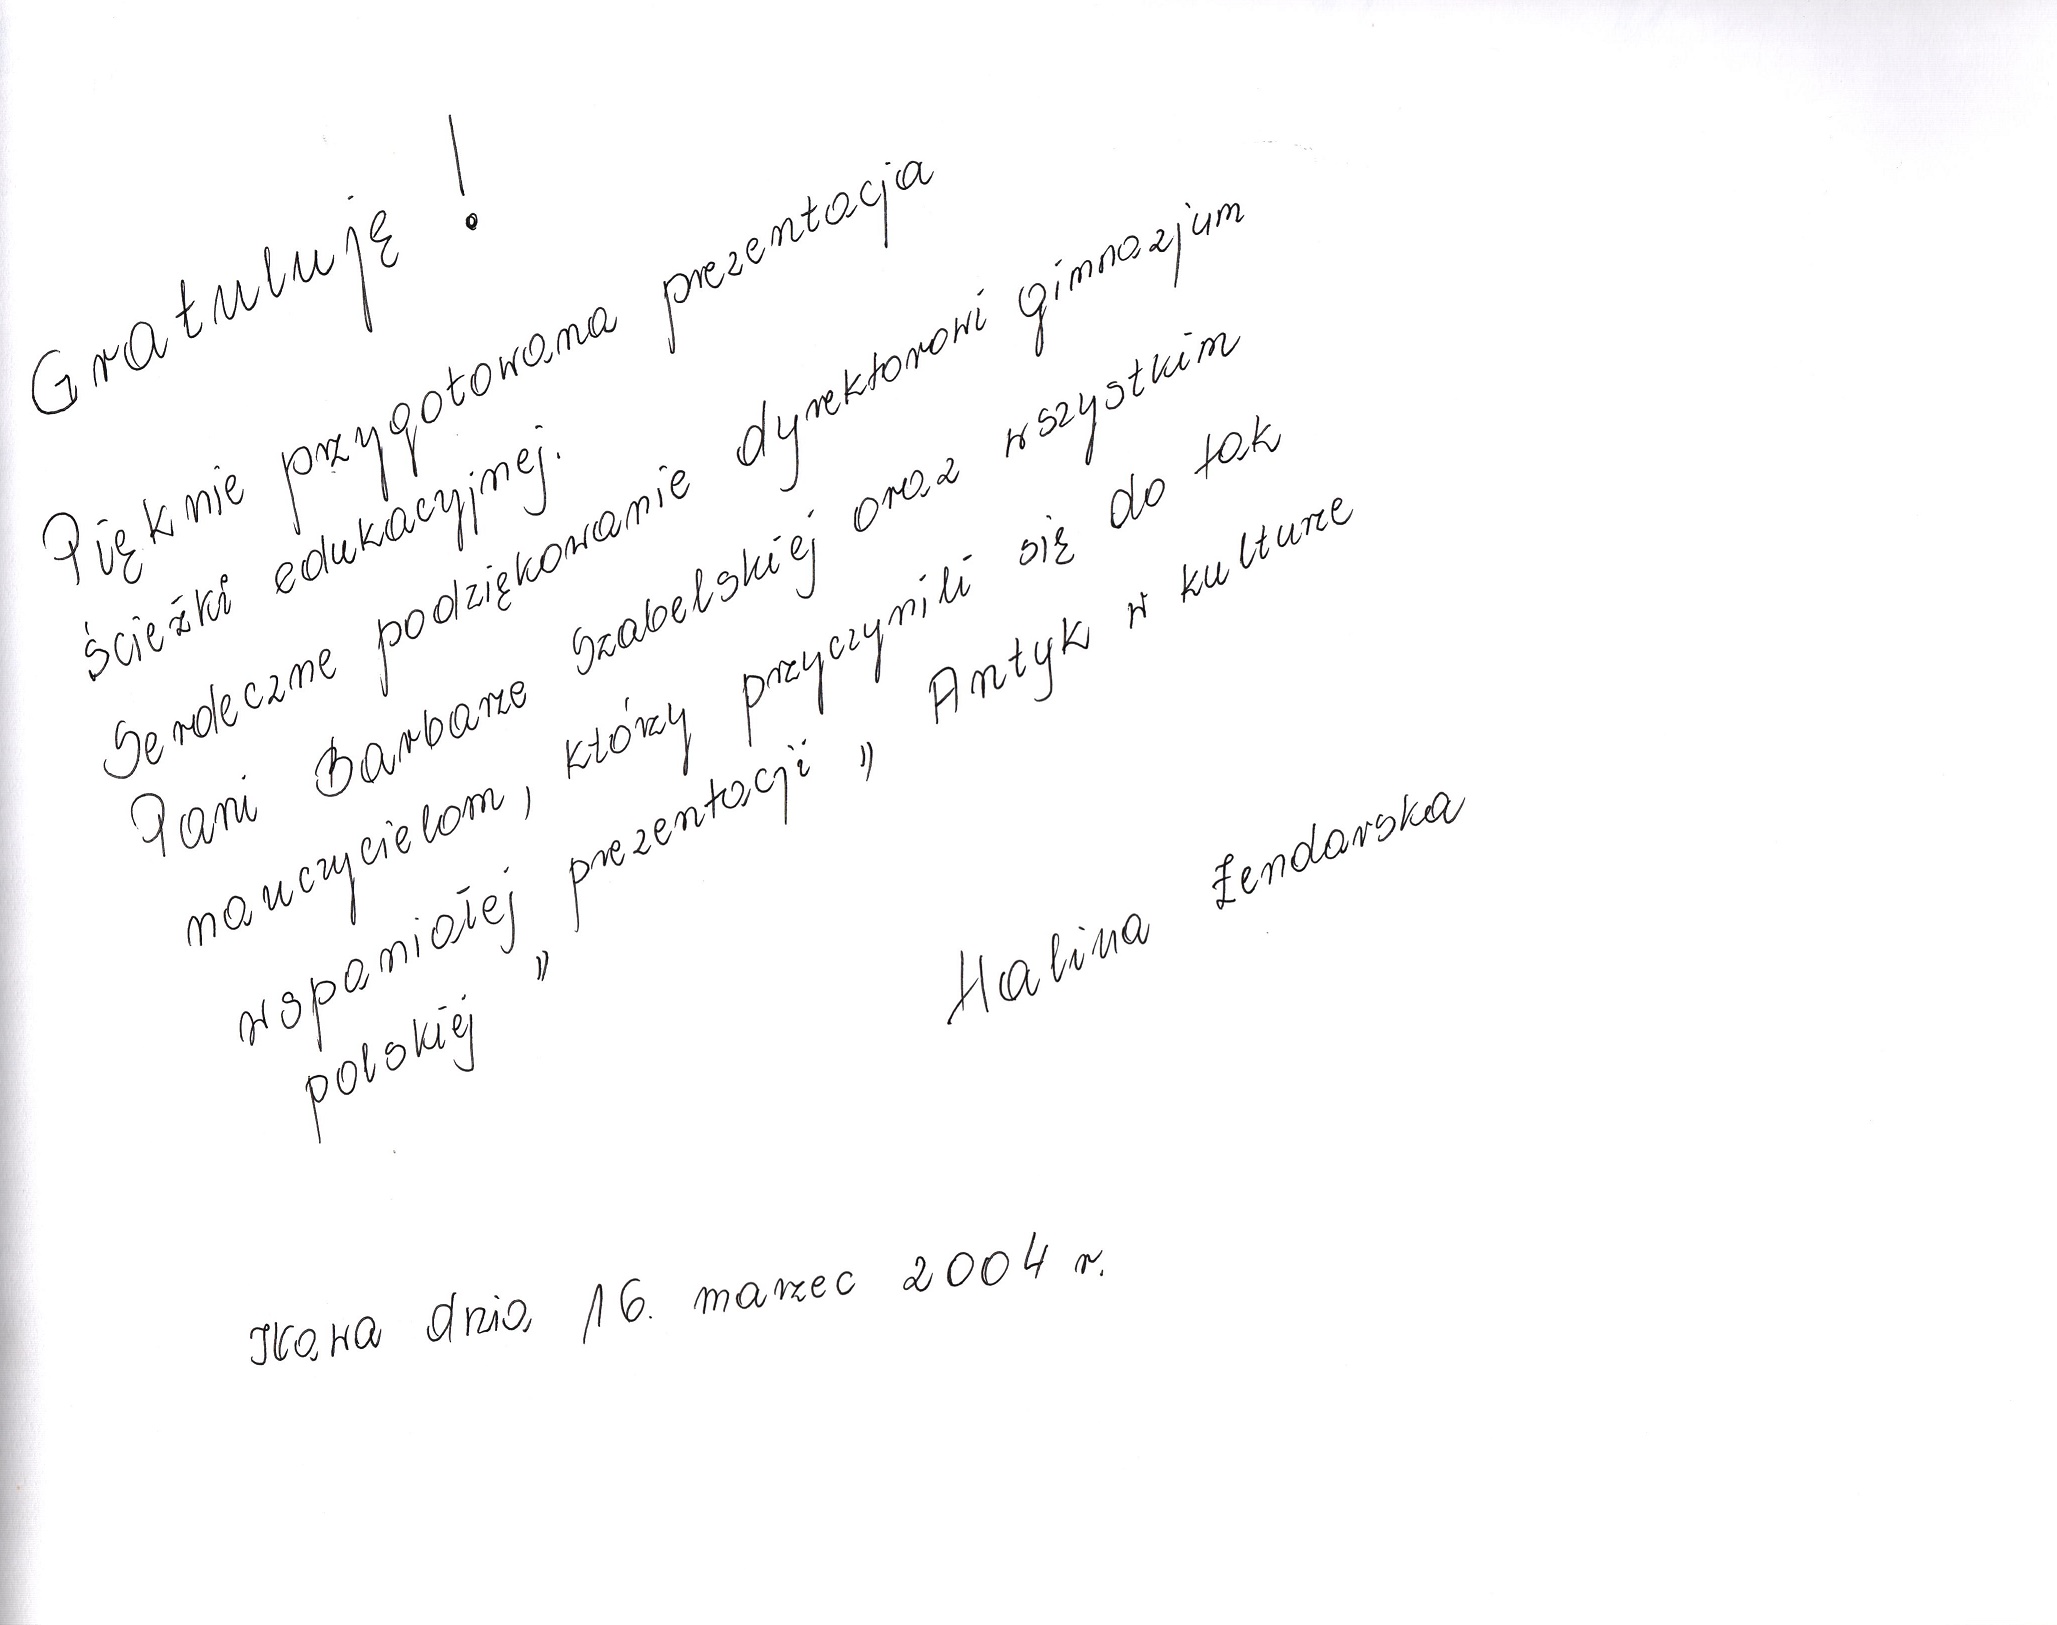 Gratuluję!
Pięknie przygotowana prezentacja
ścieżki edukacyjnej.
Serdeczne podziękowanie dyrektorowi gimnazjum
Pani Barbarze Szabelskiej oraz wszystkim
nauczycielom, którzy przyczynili się do tak
wspaniałej prezentacji " Antyk w kulturze
polskiej "
Halina Żendarska
Iława dnia 16. marzec 2004 r.